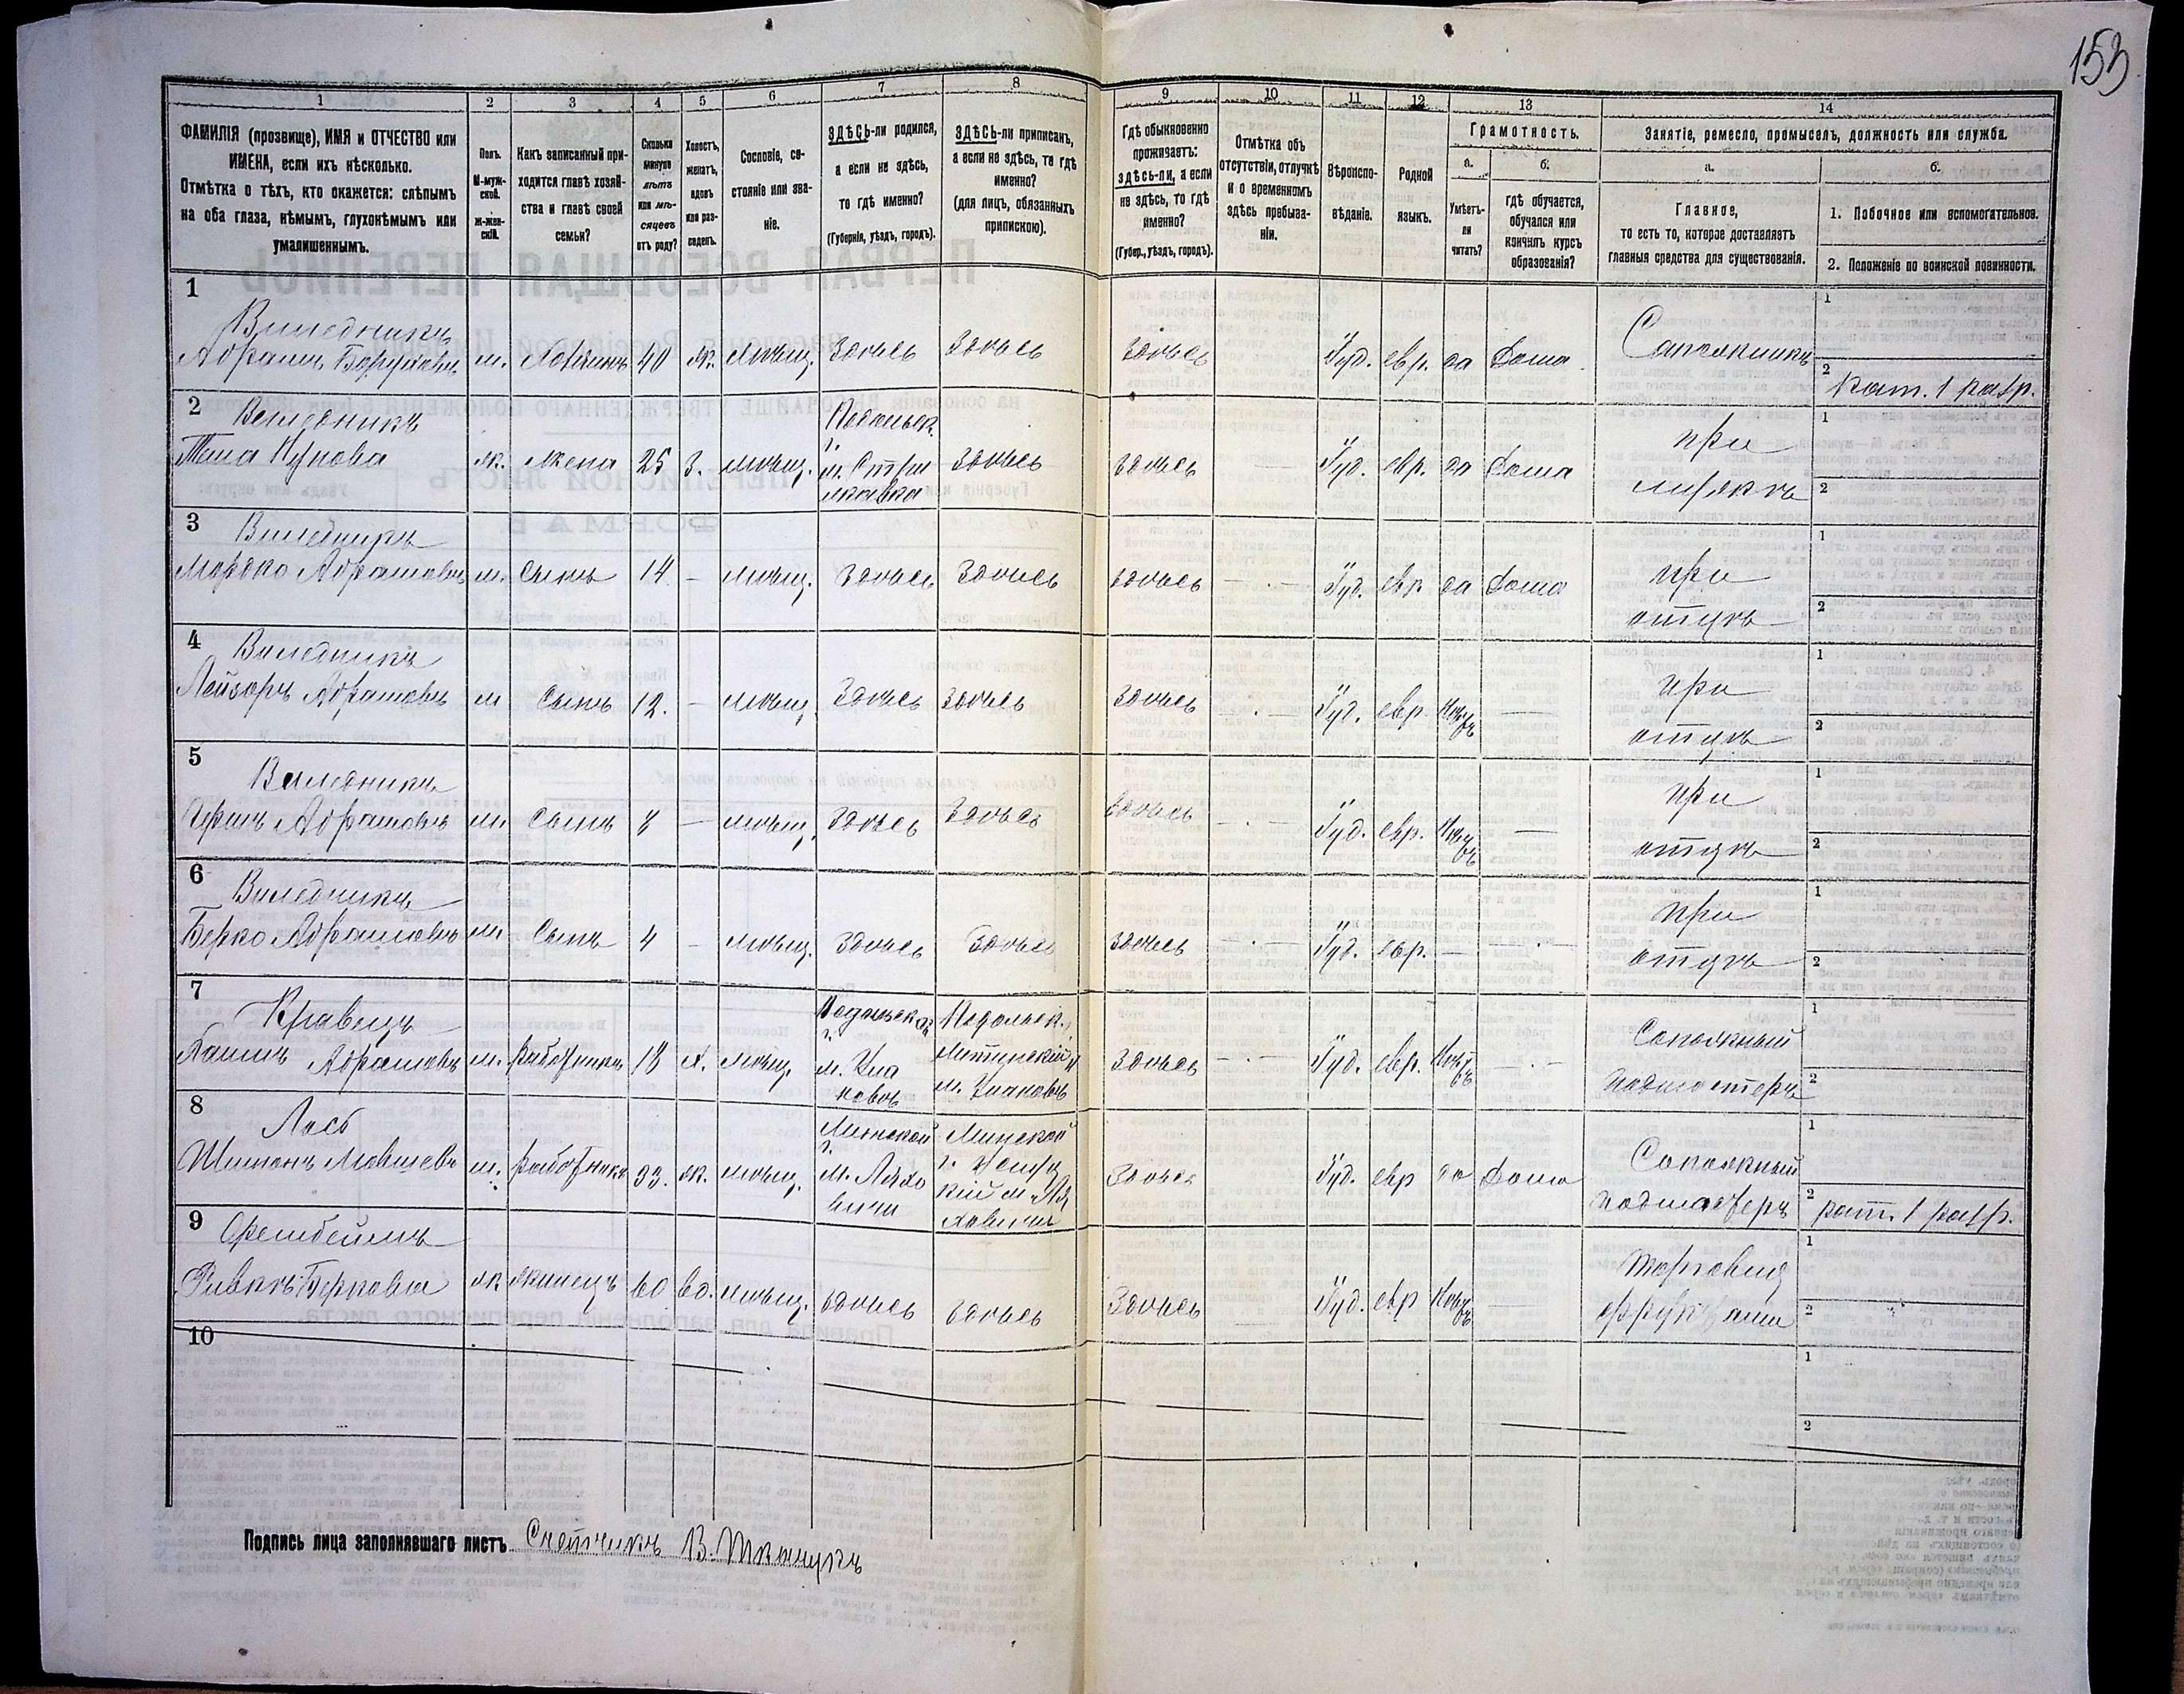 153
1 2 3 4 5 6 7 8 9 10 11 12 13 14
ФАМИЛІЯ (прозвище), ИМЯ и ОТЧЕСТВО или
ИМЕНА, если ихъ нѣсколько.
Отмѣтка о тѣхъ, кто окажется: слѣпымъ
на оба глаза, нѣмымъ, глухонѣмымъ или
умалишеннымъ.
Полъ.
М-муж-
ской.
Ж-жен-
скій.
Какъ записанный при-
ходится главѣ хозяй-
ства и главѣ своей
семьи?
Сколько
минуло
лѣтъ
или мѣ-
сяцевъ
отъ роду?
Холостъ,
женатъ,
вдовъ
или раз-
веденъ.
Сословіе, со-
стояніе или зва-
ніе.
ЗДѢСЬ-ли родился,
а если не здѣсь,
то гдѣ именно?
(Губернія, уѣздъ, городъ).
ЗДѢСЬ-ли приписанъ,
а если не здѣсь, то гдѣ
именно?
(для лицъ, обязанныхъ
припискою).
Гдѣ обыкновенно
проживаетъ:
здѣсь-ли, а если
не здѣсь, то гдѣ
именно?
(Губер., уѣздъ, городъ).
Отмѣтка объ
отсутствіи, отлучкѣ
и о временномъ
здѣсь пребыва-
ніи.
Вѣроиспо-
вѣданіе.
Родной
языкъ.
Грамотность.
а.
Умѣетъ-
ли
читать?
б.
гдѣ обучается,
обучался или
кончилъ курсъ
образованія?
Занятіе, ремесло, промыселъ, должность или служба.
а.
Главное,
то есть то, которое доставляетъ
главныя средства для существованія.
б.
1. Побочное или вспомогательное.
2. Положеніе по воинской повинности.
1
Виледникъ
Абрамъ Боруховъ м. Хозяинъ 40 ж. мѣщ. Здѣсь Здѣсь Здѣсь Іуд. евр. да Дома Сапожникъ
1
2 рат. 1 разр.
2 Виледникъ
ж. жена 25 з. мѣщ. Подольск. г. м. Стри жавка здѣсь здѣсь — Іуд. евр. да Дома при мужѣ
1
2
3 Виледникъ
Мордко Абрамовъ м. Сынъ 14 - мѣщ. Здѣсь Здѣсь здѣсь — Іуд. евр да Дома при отцѣ
1
2
4 Виледникъ
Лейзоръ Абрамовъ м Сынъ 12. - мѣщ. Здѣсь здѣсь здѣсь — Іуд. евр Нѣтъ — при отцѣ
1
2
5 Виледникъ
Абрамовъ м. Сынъ 8 — мѣщ. здѣсь здѣсь здѣсь — Іуд. евр. Нѣтъ — при отцѣ
1
2
6 Виледникъ
Берко Абрамовъ м. Сынъ 4 - мѣщ. здѣсь здѣсь здѣсь — Іуд. евр. — — при отцѣ
1
2
7 Кравецъ
Абрамовъ м. работникъ 18 х. мѣщ. Подольской г. м. Ула новъ Подольск. Литинскій м. Улановъ Здѣсь — Іуд. евр. Нѣтъ — Сапожный подмастеръ
1
2
8
Шимонъ Мовшевъ м. работникъ 33. ж. мѣщ. Минской г. м. Ляхо вичи Минской г. м. Ля ховичи Здѣсь Іуд. евр да Дома Сапожный подмастеръ
1
2 рат. 1 разр.
9
Берковна ж жилецъ 60 вд. мѣщ. здѣсь здѣсь Здѣсь — Іуд. евр Нѣтъ — Торговец фруктами
1
2
10
1
2
Подпись лица заполнявшаго листъ Счетчикъ В.